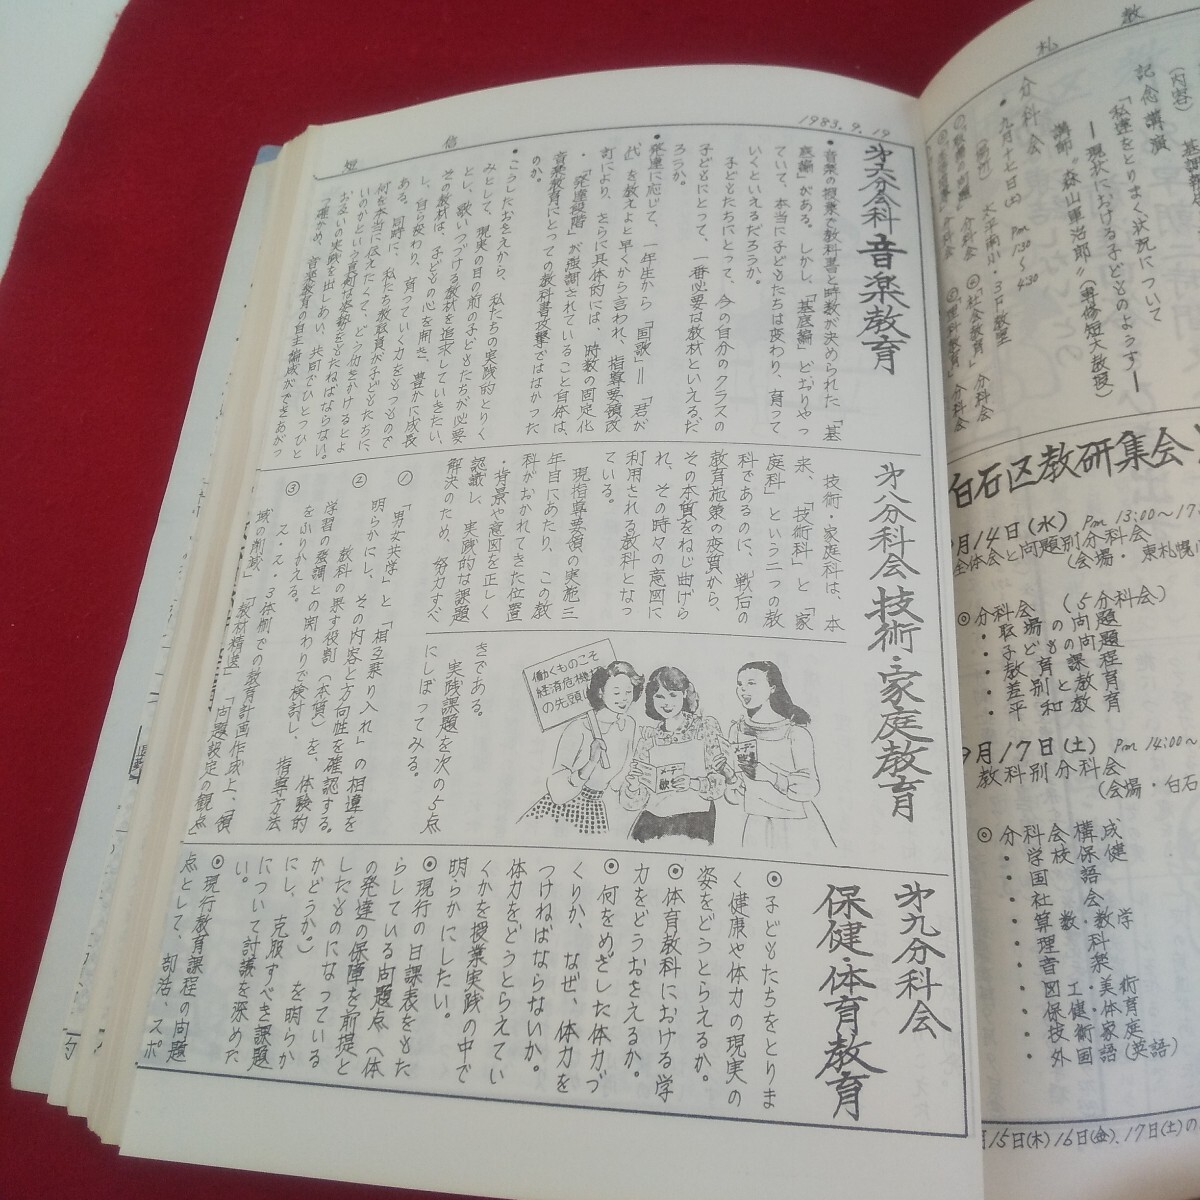 1983.9.19
短信
才六分会科 音楽教育
・音楽の授業で教科書と時数が決められた「基
底編」がある。しかし、「基底編」どおりやっ
ていて、本当に子どもたちは変わり、育って
いくといえるだろうか。
子どもたちにとって、今の自分のクラスの
子どもにとって、一番必要な教材といえるだ
ろうか。
・発達に応じて、一年生から「国歌」=「君が
代」を教えよと早くから言われ、指導要領改
訂により、さらに具体的には、時数の固定化
・「発達段階」が強調されていること自体は、
音楽教育にとっての教科書攻撃ではなかった
のか。
・こうしたおさえから、私たちの実践的とりく
みとして、現実の目の前の子どもたちが必要
とし、歌いつづける教材を追求していきたい。
その教材は、子どもの心を開き、豊かに成長
し、自ら変わり、育っていく力をもつもので
ある。同時に、私たち教職員が子どもたちに、
何を本当に伝えたくて、どう幼をかけるとよ
いのかという真剣な姿勢をもたねばならない。
お互いの実践を出しあい、共同でひとつひと
つ確かめ、音楽教育の自主編成ができあが
才八分科会 技術・家庭教育
技術・家庭科は、本
来、「技術科」と「家
庭科」という二つの教
科であるのに、戦后の
教育施策の変質から、
その本質をねじ曲げら
れ、その時々の意図に
利用される教科となっ
ている。
現指導要領の実施三
年目にあたり、この教
科がおかれてきた位置
・背景や意図を正しく
認識し、実践的な課題
解決のため、努力すべ
きである。
実践課題を次の5点
にしぼってみる。
① 「男女共学」と「相互乗り入れ」の相違を
明らかにし、その内容と方向性を確認する。
② 教科の果す役割(本質)を、体験的
学習の強調との関わりで検討し、指導方法
をふりかえる。
③ 2・2・3体制での教育計画作成上、「領
域の削減」「教材精選」「問題設定の観点」
働くものこそ
経済危機
の先頭に
メーデー
歌
メーデー
才九分科会
保健・体育教育
◎子どもたちをとりま
く健康や体力の現実の
姿をどうとらえるか。
◎体育教科における学
力をどうおさえるか。
◎何をめざした体力づ
くりか、なぜ、体力を
つけねばならないか。
体力をどうとらえてい
くかを授業実践の中で
明らかにしたい。
◎現行の日課表をもた
らしている問題点(体
の発達の保障を前提と
したものになっている
かどうか)を明らか
にし、克服すべき課題
について討議を深めた
い。
◎現行教育課程の問題
点として、部活、スポ
教
札
(内容)
記念講演
「私達をとりまく状況について
―現状における子どものようす―
講師 "森山軍治郎"(専修短大教授)
分科会
・九月十七日(土) Pm 1:30〜4:30
太平南小 3F教室
白石区教研集会
9月14日(水) Pm 13:00〜17:
全体会と問題別分科会
(会場・東札幌小
◎分科会(5分科会)
9月17日(土) Pm 14:00〜
教科別分科会
(会場・白石
◎分科会構成
・学校保健
・国語
・社会
・算数・数学
・理科
・音楽
・図工・美術
・保健・体育
・技術・家庭
・外国語(英語)
月15日(木)16日(金)、17日(土)の